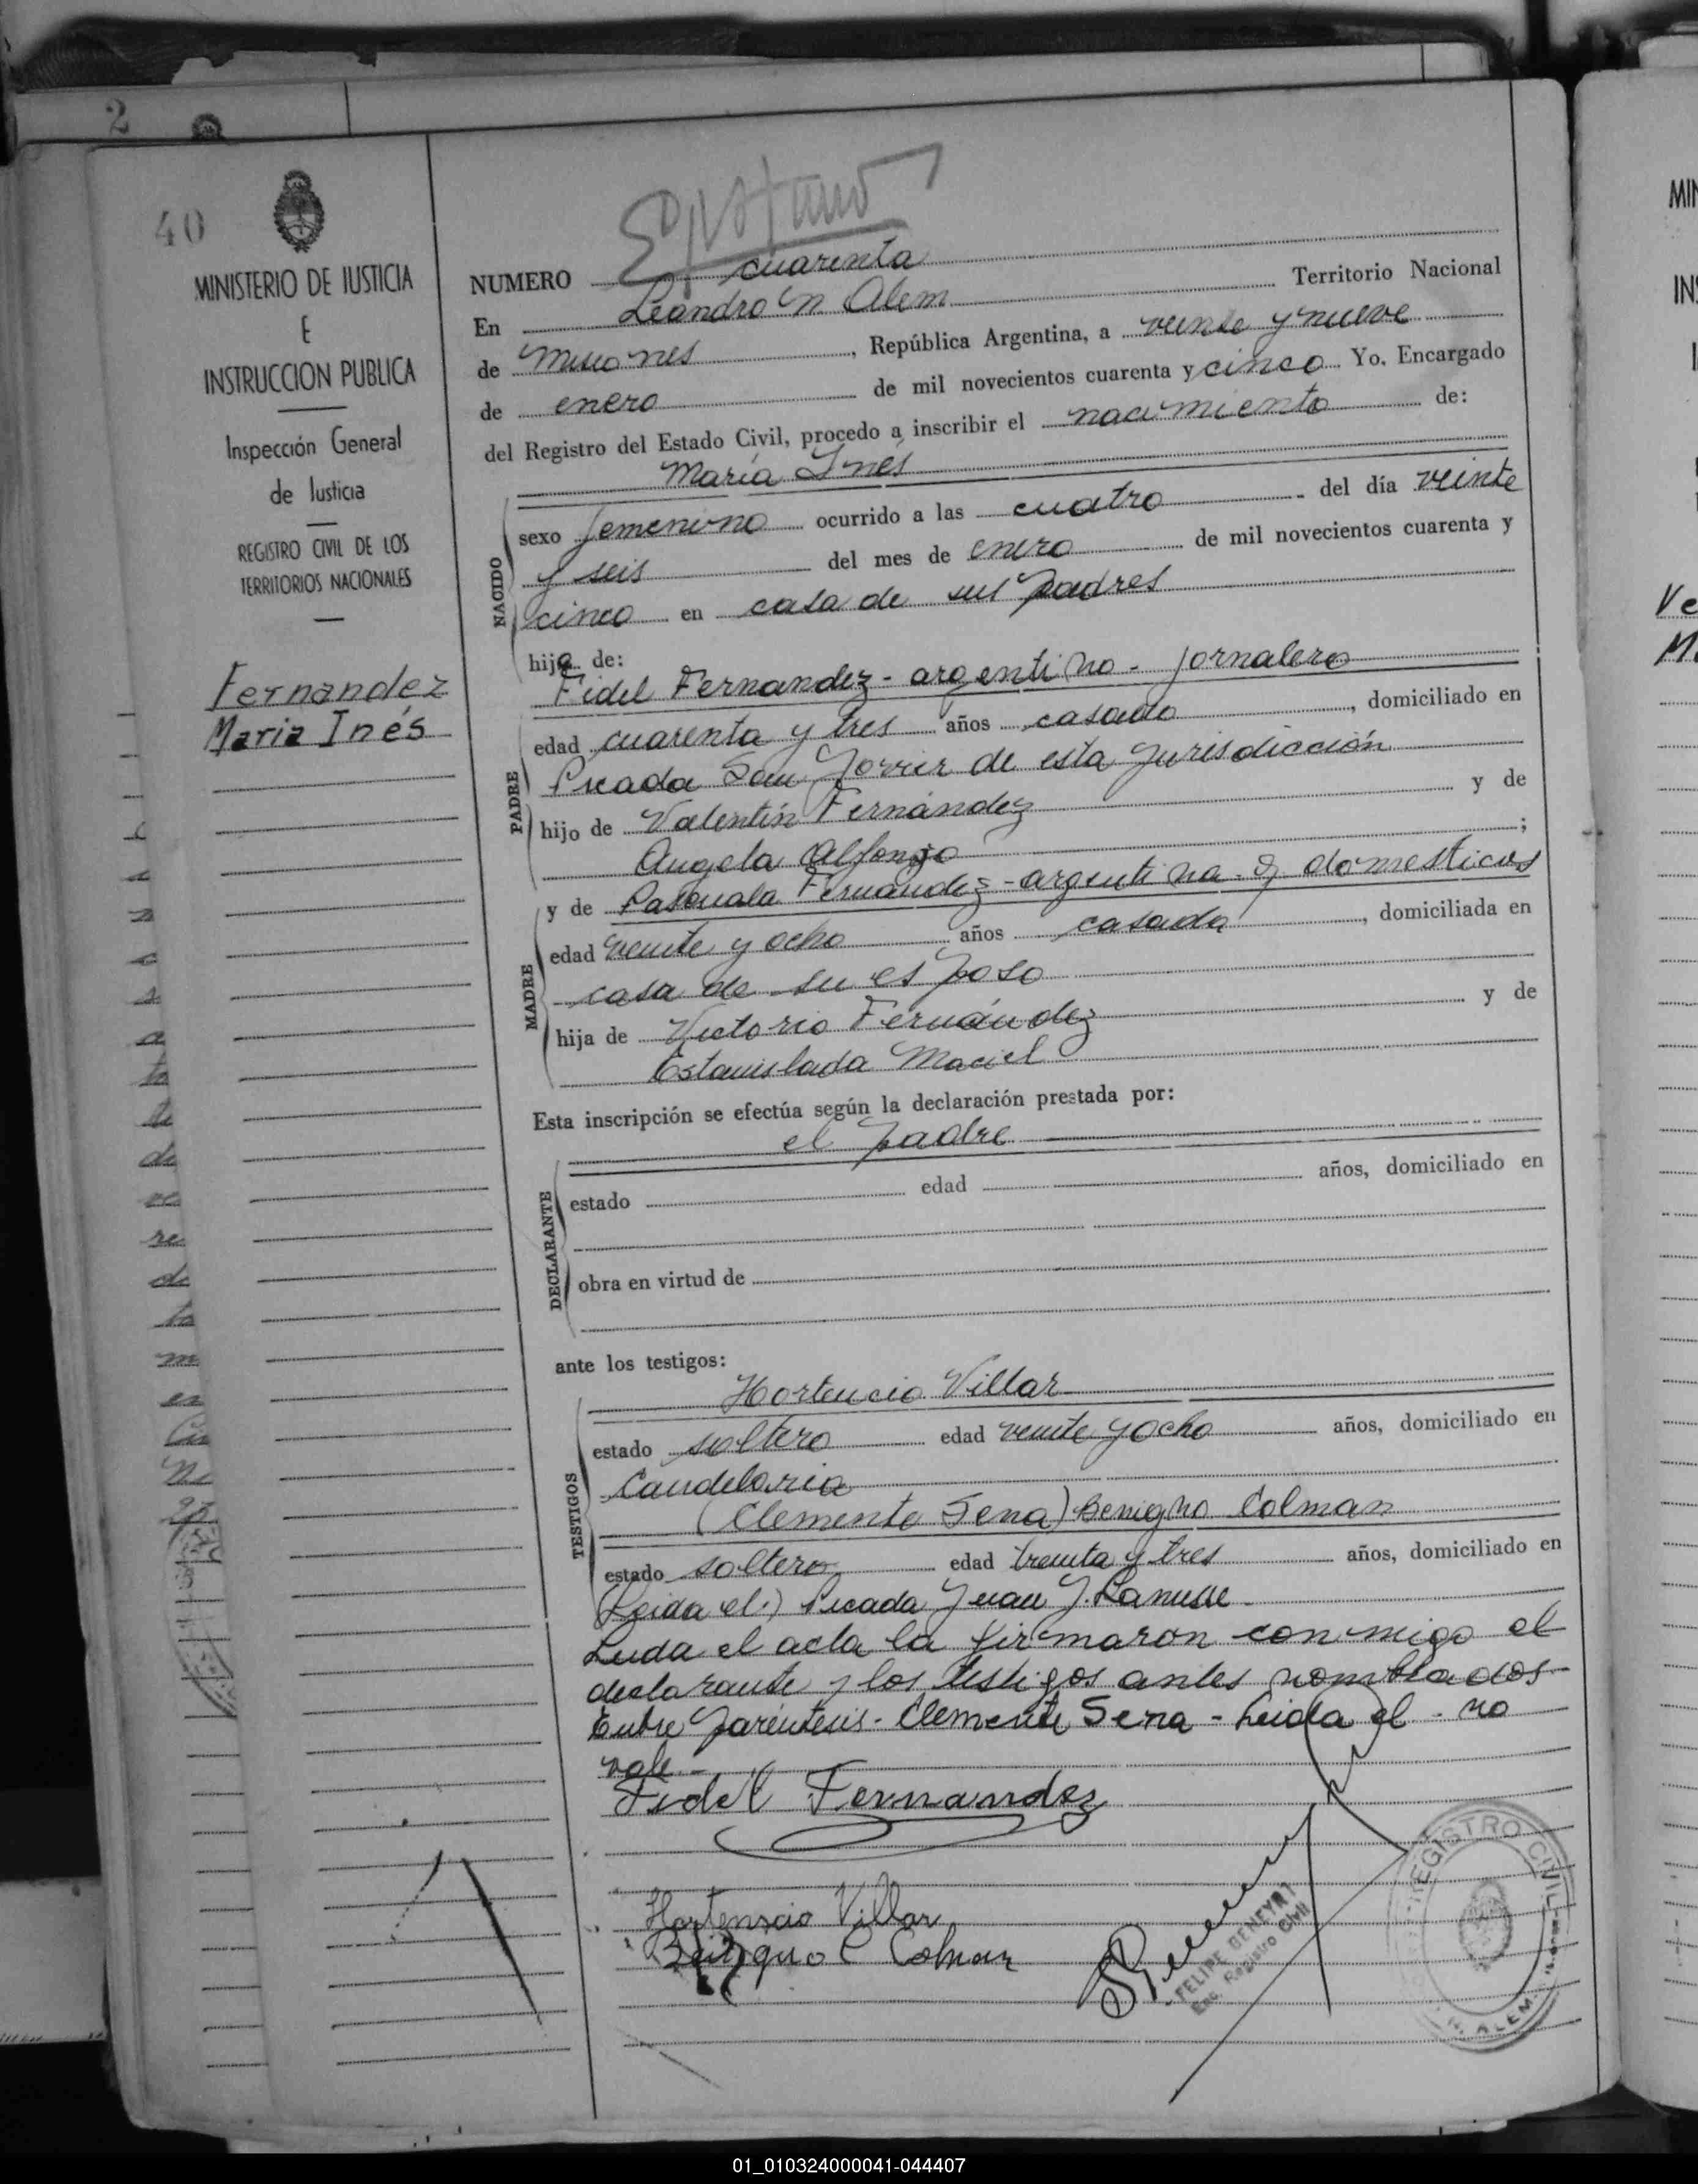 2
40
MINISTERIO DE JUSTICIA
E
INSTRUCCION PUBLICA
Inspección General
de Justicia
REGISTRO CIVIL DE LOS
TERRITORIOS NACIONALES
Fernandez
Maria Inés
NUMERO cuarenta
En Leandro N. Alem Territorio Nacional
de Misiones, República Argentina, a veinte y nueve
de enero de mil novecientos cuarenta y cinco Yo. Encargado
del Registro del Estado Civil, procedo a inscribir el nacimiento de:
María Inés
NACIDO
sexo femenino ocurrido a las cuatro del día veinte
y seis del mes de enero de mil novecientos cuarenta y
cinco en casa de sus padres
hija de:
PADRE
Fidel Fernandez - argentino - jornalero
edad cuarenta y tres años casado, domiciliado en
Picada San Javier de esta Jurisdicción
hijo de Valentín Fernández y de
Angela Alfonso;
MADRE
y de Pascuala Fernández - argentina - q. domesticos
edad veinte y ocho años casada, domiciliada en
casa de su esposo
hija de Victorio Fernández y de
Estanislada Maciel
Esta inscripción se efectúa según la declaración prestada por:
el padre
DECLARANTE
estado edad años, domiciliado en
obra en virtud de
ante los testigos:
TESTIGOS
Hortencio Villar
estado soltero edad veinte y ocho años, domiciliado en
Candelaria
(Clemente Sena) Benigno Colman
estado soltero edad treinta y tres años, domiciliado en
(Leida el.) Picada Juan J. Lanusse
Leida el acta la firmaron conmigo el
declarante y los testigos antes nombrados
Entre parentesis - Clemente Sena - Leida el - no
vale -
Fidel Fernandez
Hortensio Villar
Benigno C Colman
FELIPE BENEYRT
Enc. Registro Civil
REGISTRO CIVIL
N. ALEM
01_010324000041-044407